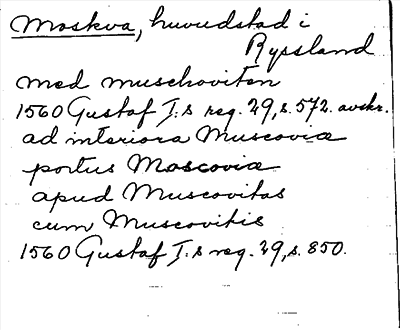 Moskva, huvudstad i
Ryssland
med muschoviten
1560 Gustaf I:s reg. 29, s. 572. avskr.
ad interiora Muscoviæ
portus Moscoviæ
apud Muscovitas
cum Muscovitis
1560 Gustaf I:s reg. 29, s. 850.